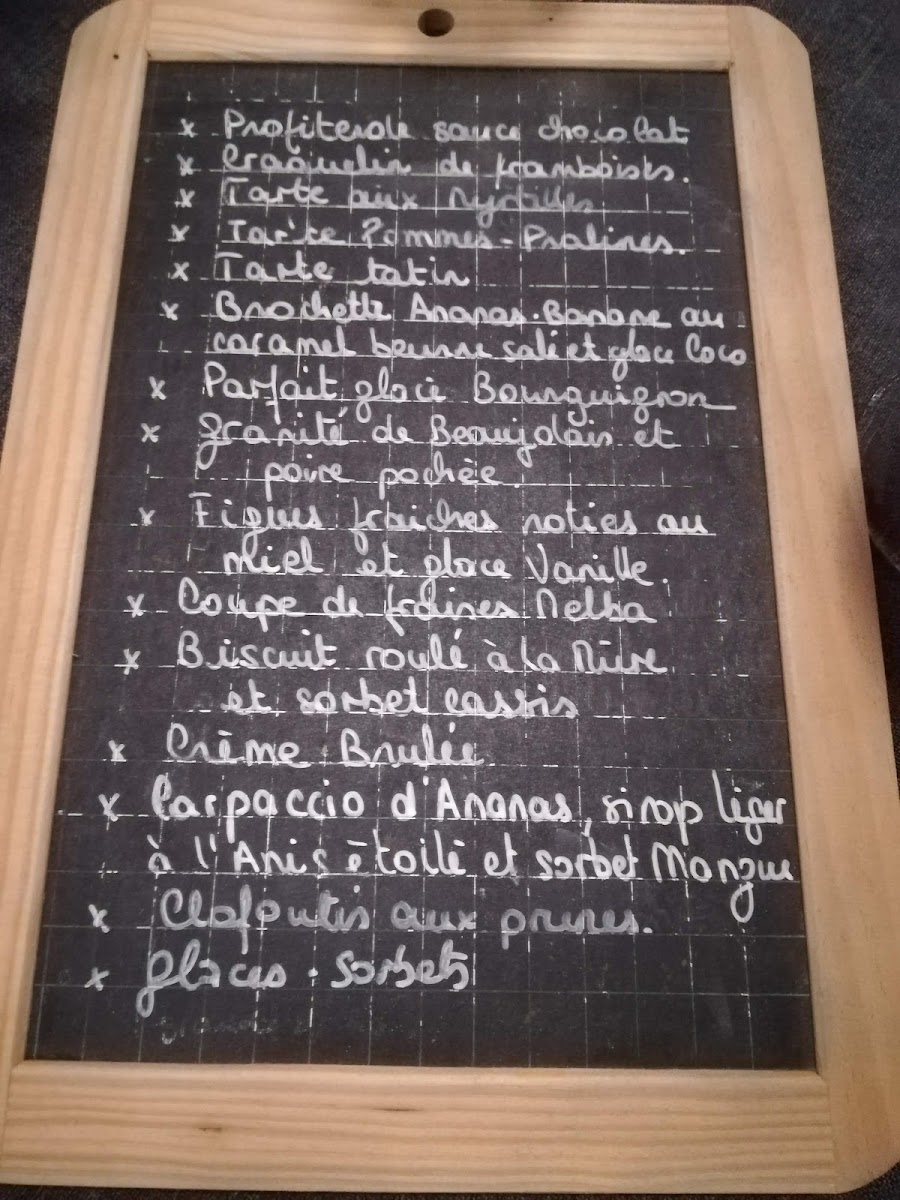 x Profiterole sauce chocolat
x Craquelin de framboises.
x Tarte aux Myrtilles
x Tarte Pommes-Pralines.
x Tarte tatin
x Brochette Ananas-Banane au
caramel beurre salé et glace Coco
x Parfait glacé Bourguignon
x Granité de Beaujolais et
poire pochée.
x Figues fraiches roties au
miel et glace Vanille.
x Coupe de fraises Melba
x Biscuit roulé à la Mûre
et sorbet cassis
x Crème Brulée
x Carpaccio d'Ananas, sirop léger
à l'Anis étoilé et sorbet Mangue
x Clafoutis aux prunes.
x Glaces . Sorbets